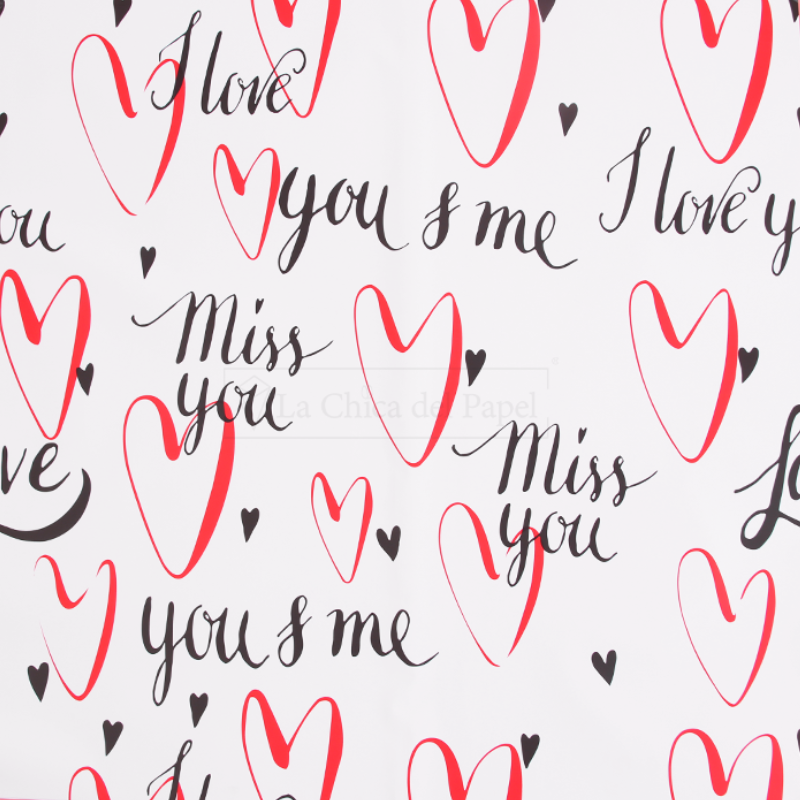 I love
you & me
I love y
ou
Miss
you
La Chica del Papel
ve
Miss
you
Lo
you & me
I l